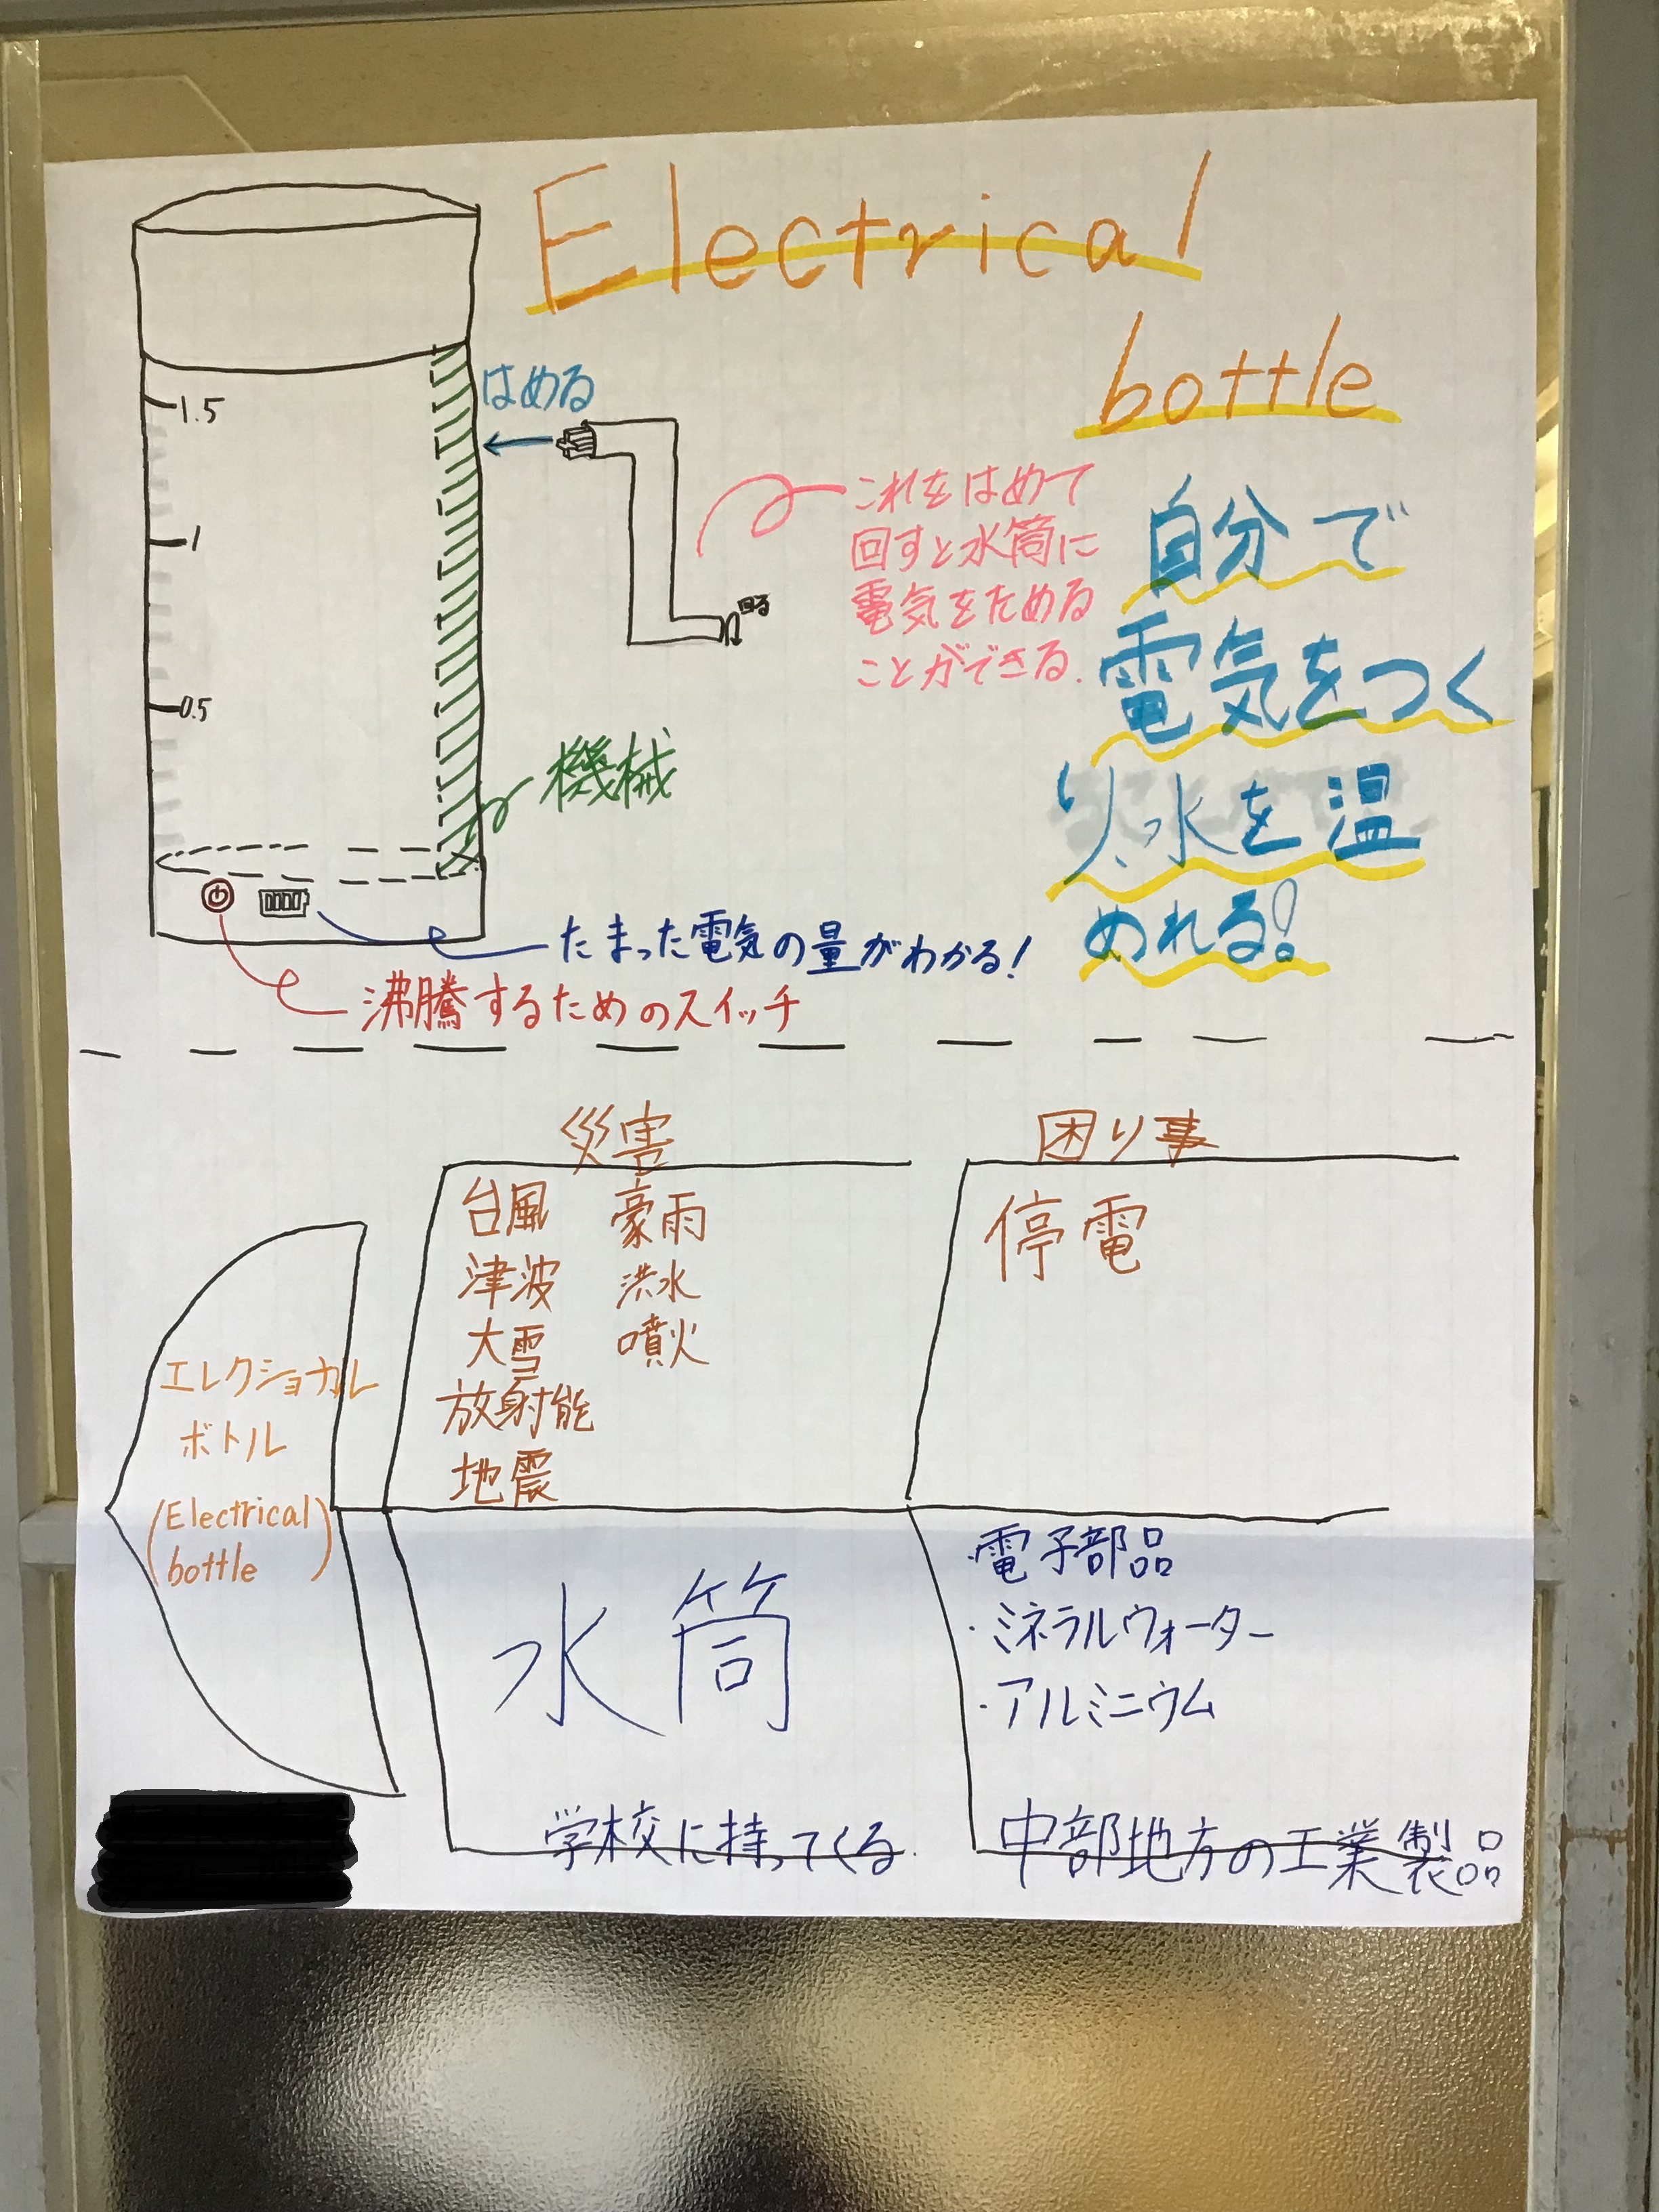 Electrical
bottle
1.5
1
0.5
はめる
回る
これをはめて
回すと水筒に
電気をためる
ことができる.
自分で
電気をつく
り、水を温
めれる!
機械
たまった電気の量がわかる!
沸騰するためのスイッチ
災害
台風 豪雨
津波 洪水
大雪 噴火
放射能
地震
困り事
停電
エレクショナル
ボトル
(Electrical
bottle)
水筒
学校に持ってくる.
・電子部品
・ミネラルウォーター
・アルミニウム
中部地方の工業製品